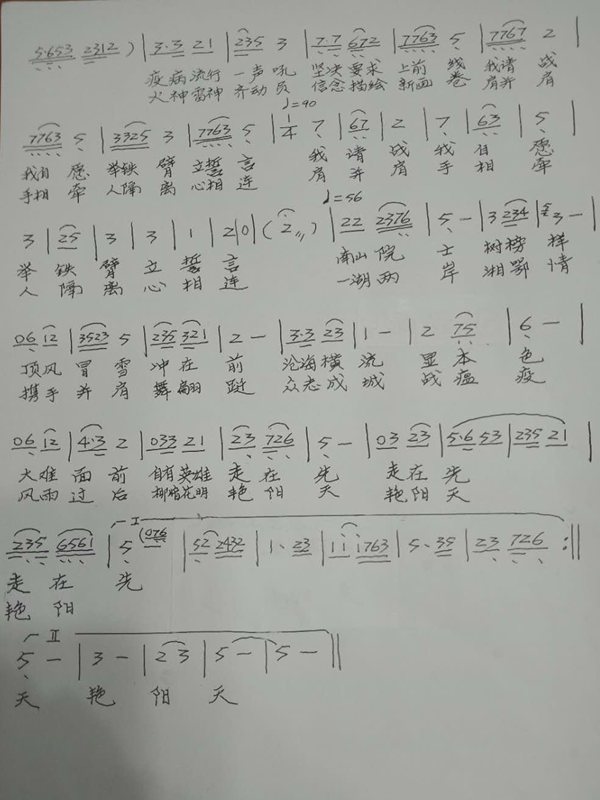 5·653 2312 ) | 3·3 21 | 235 3 | 7·7 672 | 7763 5 | 7767 2 |
疫病流行 一声吼 坚决要求 上前 线 我请 战
火神雷神 齐动员 信念描绘 新画 卷 肩并 肩
♩=90
7763 5 | 3325 3 | 7763 5 | 1/4 7 | 67 | 2 | 7 | 63 | 5 |
我自 愿 举铁 臂 立誓 言 我 请 战 我 自 愿
手相 牵 人隔 离 心相 连 肩 并 肩 手 相 牵
♩=56
3 | 25 | 3 | 3 | 1 | 2 | 0 | ( 2 〃 ) | 22 2376 | 5 - | 3 234 | 3 - |
举 铁 臂 立 誓 言 南山 院 士 树榜 样
人 隔 离 心 相 连 一湖 两 岸 湘鄂 情
06 12 | 3523 5 | 235 321 | 2 - | 3·3 23 | 1 - | 2 75 | 6 - |
顶风 冒 雪 冲 在 前 沧海 横 流 显 本 色
携手 并 肩 舞 翩 跹 众志 成 城 战 瘟 疫
06 12 | 4·3 2 | 033 21 | 23 726 | 5 - | 03 23 | 5·6 53 | 235 21 |
大难 面 前 自有英雄 走 在 先 走 在 先
风雨 过 后 柳暗花明 艳 阳 天 艳 阳 天
I
235 6561 | 5 (076 | 52 2432 | 1· 23 | 11 1763 | 5· 35 | 23 726 :||
走 在 先
艳 阳
II
5 - | 3 - | 23 | 5 - | 5 - ||
天 艳 阳 天